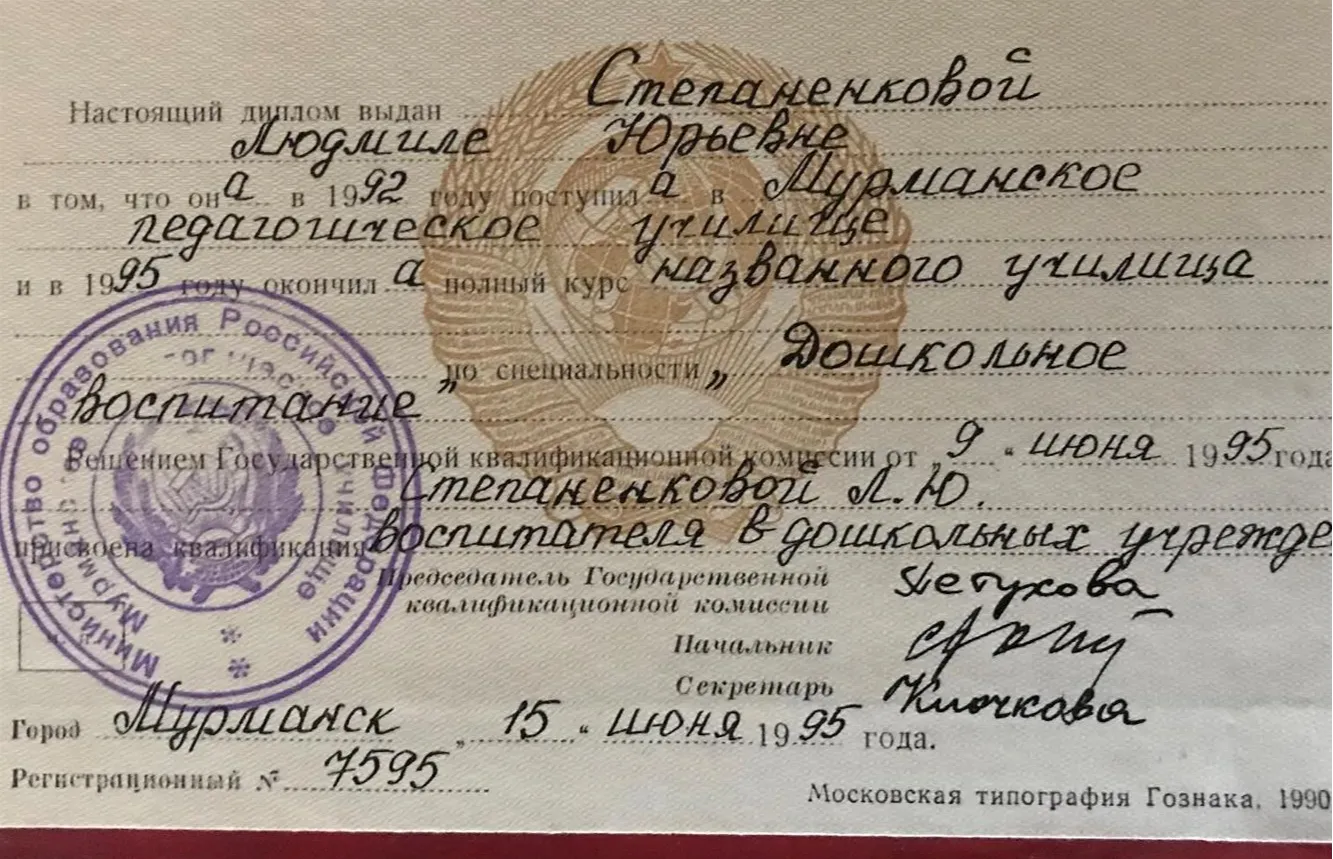 Настоящий диплом выдан Степаненковой
Людмиле Юрьевне
в том, что она в 1992 году поступила в Мурманское
педагогическое училище
и в 1995 году окончила полный курс названного училища
по специальности „Дошкольное
воспитание"
Решением Государственной квалификационной комиссии от „9" июня 1995 года
Степаненковой Л.Ю.
присвоена квалификация воспитателя в дошкольных учрежде
Председатель Государственной
квалификационной комиссии Петухова
Начальник
Секретарь Клочкова
Город Мурманск „15" июня 1995 года.
Регистрационный № 7595
Московская типография Гознака. 1990
Министерство образования Российской Федерации
Мурманское педагогическое училище